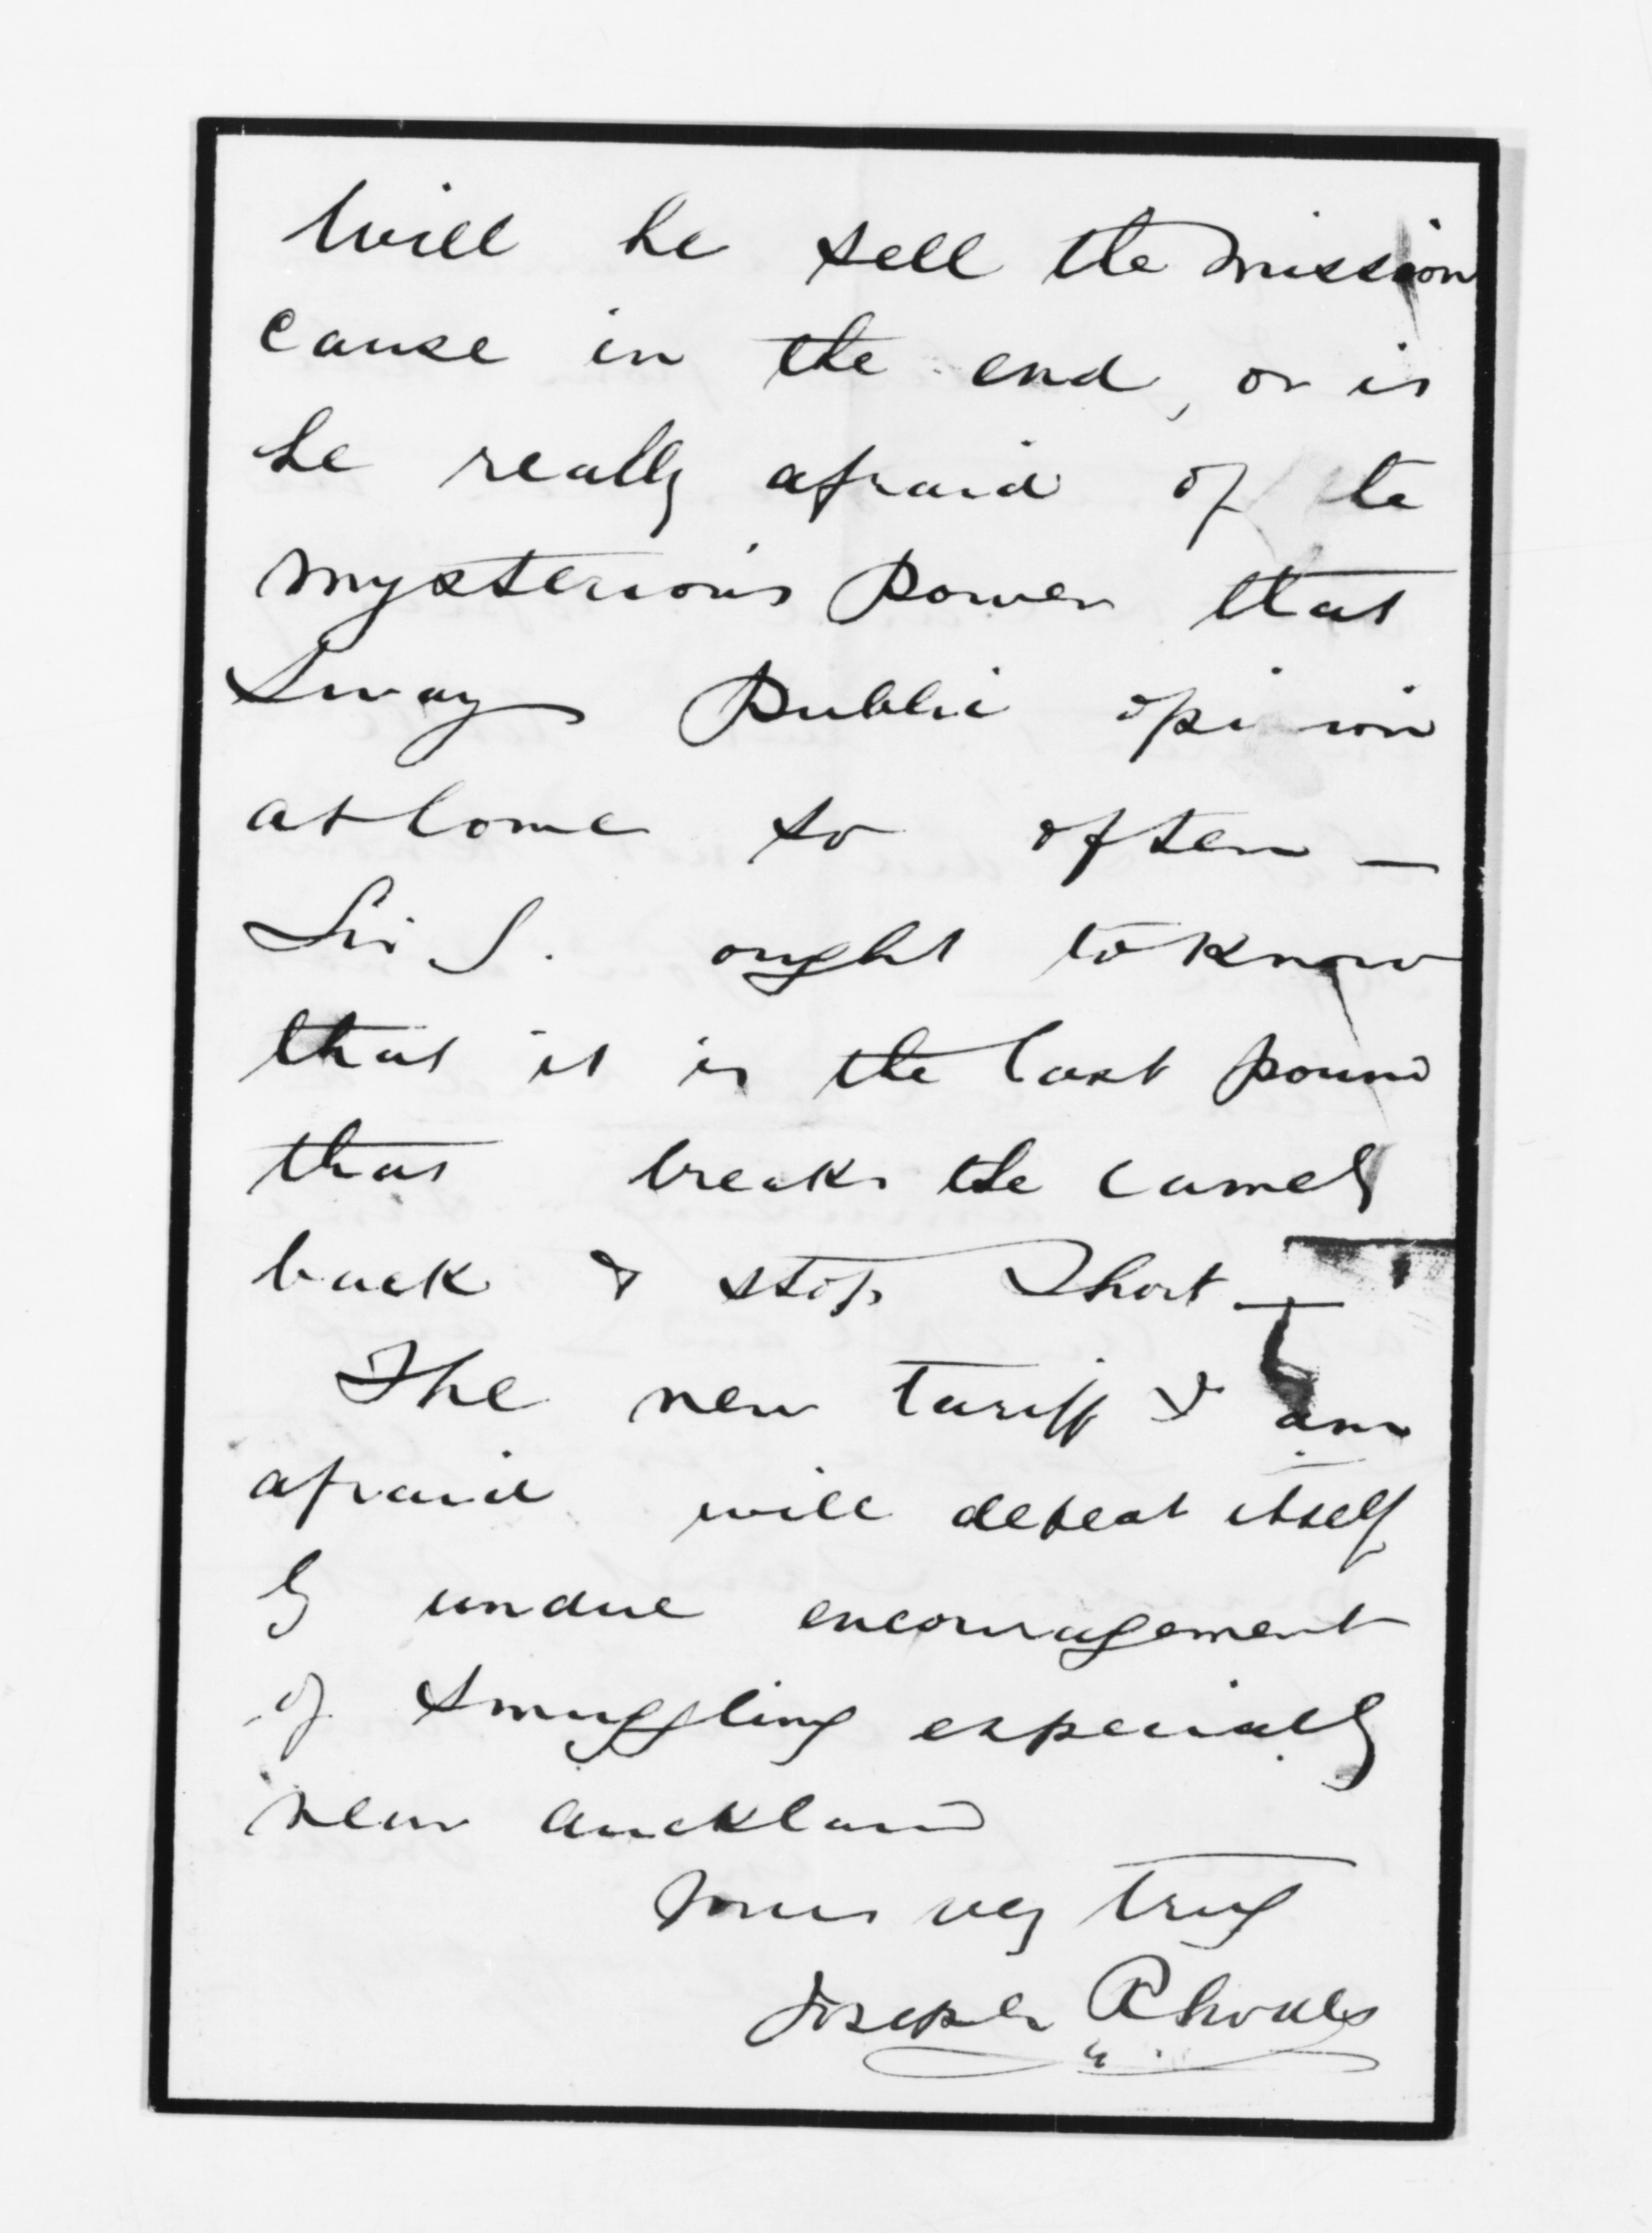 Will he sell the mission
cause in the end, or is
he really afraid of the
mysterious Power that
Sway Public opinion
at home so often —
Sir J. ought to know
that it is the last pound
that breaks the camels
back & stop short —
The new tariff I am
afraid will defeat itself
by undue encouragement
of smuggling especially
near Auckland
Yours very truly
Joseph Rhodes